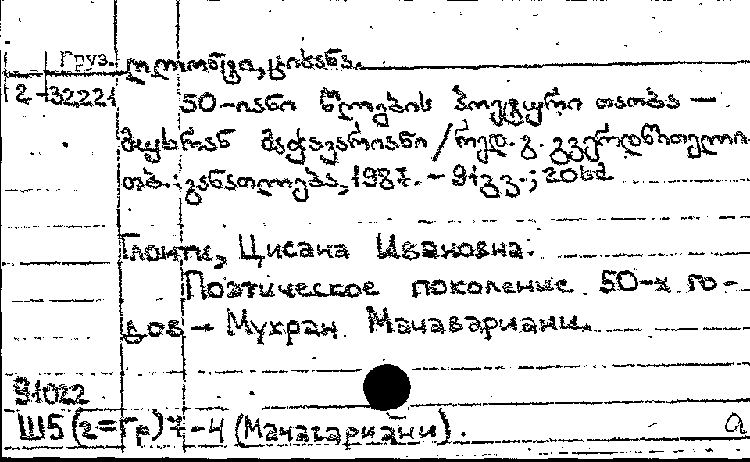 Груз. ღლონტი, ცისანა.
2-32221 50-იანი წლების პოეტური თაობა —
მუხრან მაჭავარიანი / რედ. გ. გვერდწითელი
თბ.: განათლება, 1987. - 91 გვ.; 20 სმ
Глонти, Цисана Ивановна.
Поэтическое поколение 50-х го-
дов — Мухран Мачавариани.
91022
Ш5(2=Гр)7-4 (Мачавариани).